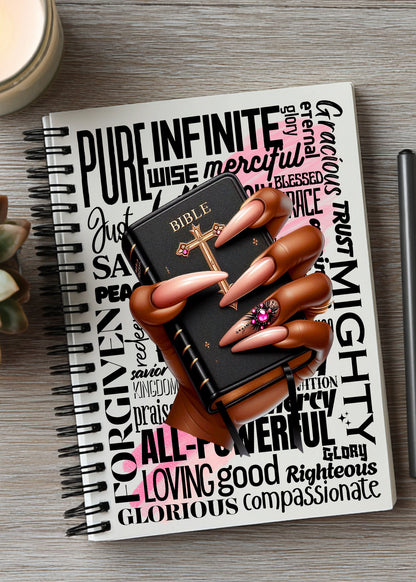 PURE INFINITE
glory
eternal
Gracious
WISE merciful
BLESSED
Just
BIBLE
GRACE
TRUST
PEACE
MIGHTY
redee
savior
KINGDOM
FORGIVEN
praise
mercy
ALL-POWERFUL
GLORY
LOVING good Righteous
GLORIOUS compassionate